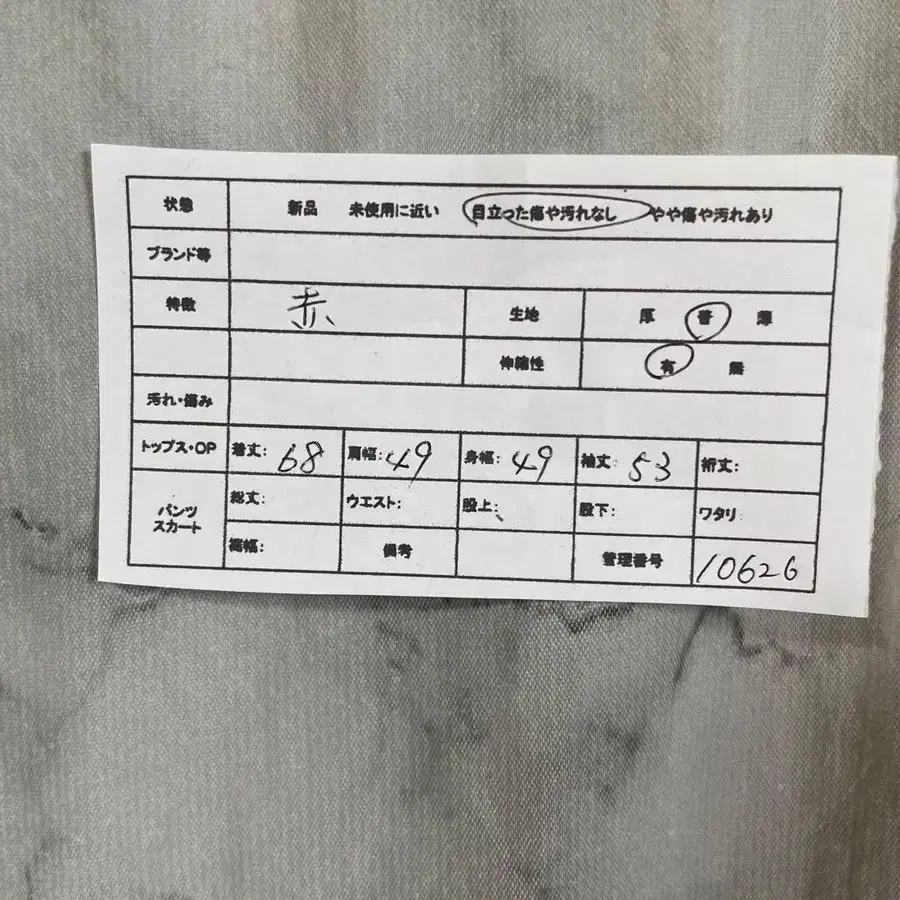 状態 新品 未使用に近い 目立った傷や汚れなし やや傷や汚れあり
ブランド等
特徴 赤 生地 厚 普 薄
伸縮性 有 無
汚れ・傷み
トップス・OP 着丈: 68 肩幅: 49 身幅: 49 袖丈: 53 裄丈:
パンツ スカート 総丈: ウエスト: 股上: 股下: ワタリ
裾幅: 備考 管理番号 10626